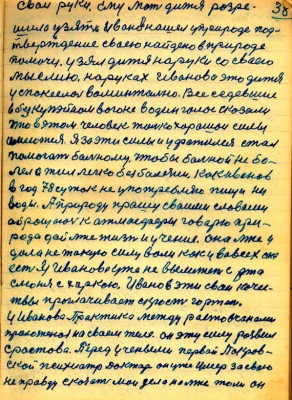 свои руки, ему мол дитя разре- 38
шило узяти. Иванов нашел у природе под-
тверждение своего найдено в природе
помочи, узял дитя на руки со своею
мыслию, на руках Иванова это дитя
успокоелося моментално. Все седевшие
в этом вогоне в один голос сказали
что в этом человек только хорошая сила
имеется. Я за эти силы и ухватился стал
помогать бальному чтобы бальной не бо-
лел а жил легко без болезни. Как Иванов
в год 78 суток не употребляю пищи ни
воды. А природу прашу своими словами
обращаюсь к атмосферы говорю при-
рода дай мне жизнь и учение. она мне и
дала не такую силу воли как у вас всех она
есть. У Иванова уте не вымятеш с рта
слюня с паркою. Иванов эти свои качес-
твы проглачивает скрость гортом.
У Иванова Практика между растовчанами
практикой на своем теле. он эту силу розвил
с растова. Перед учеными первай Покров-
ской психиатр Доктор он уте имер за свою
не правду сказать мои дела на мне толи он